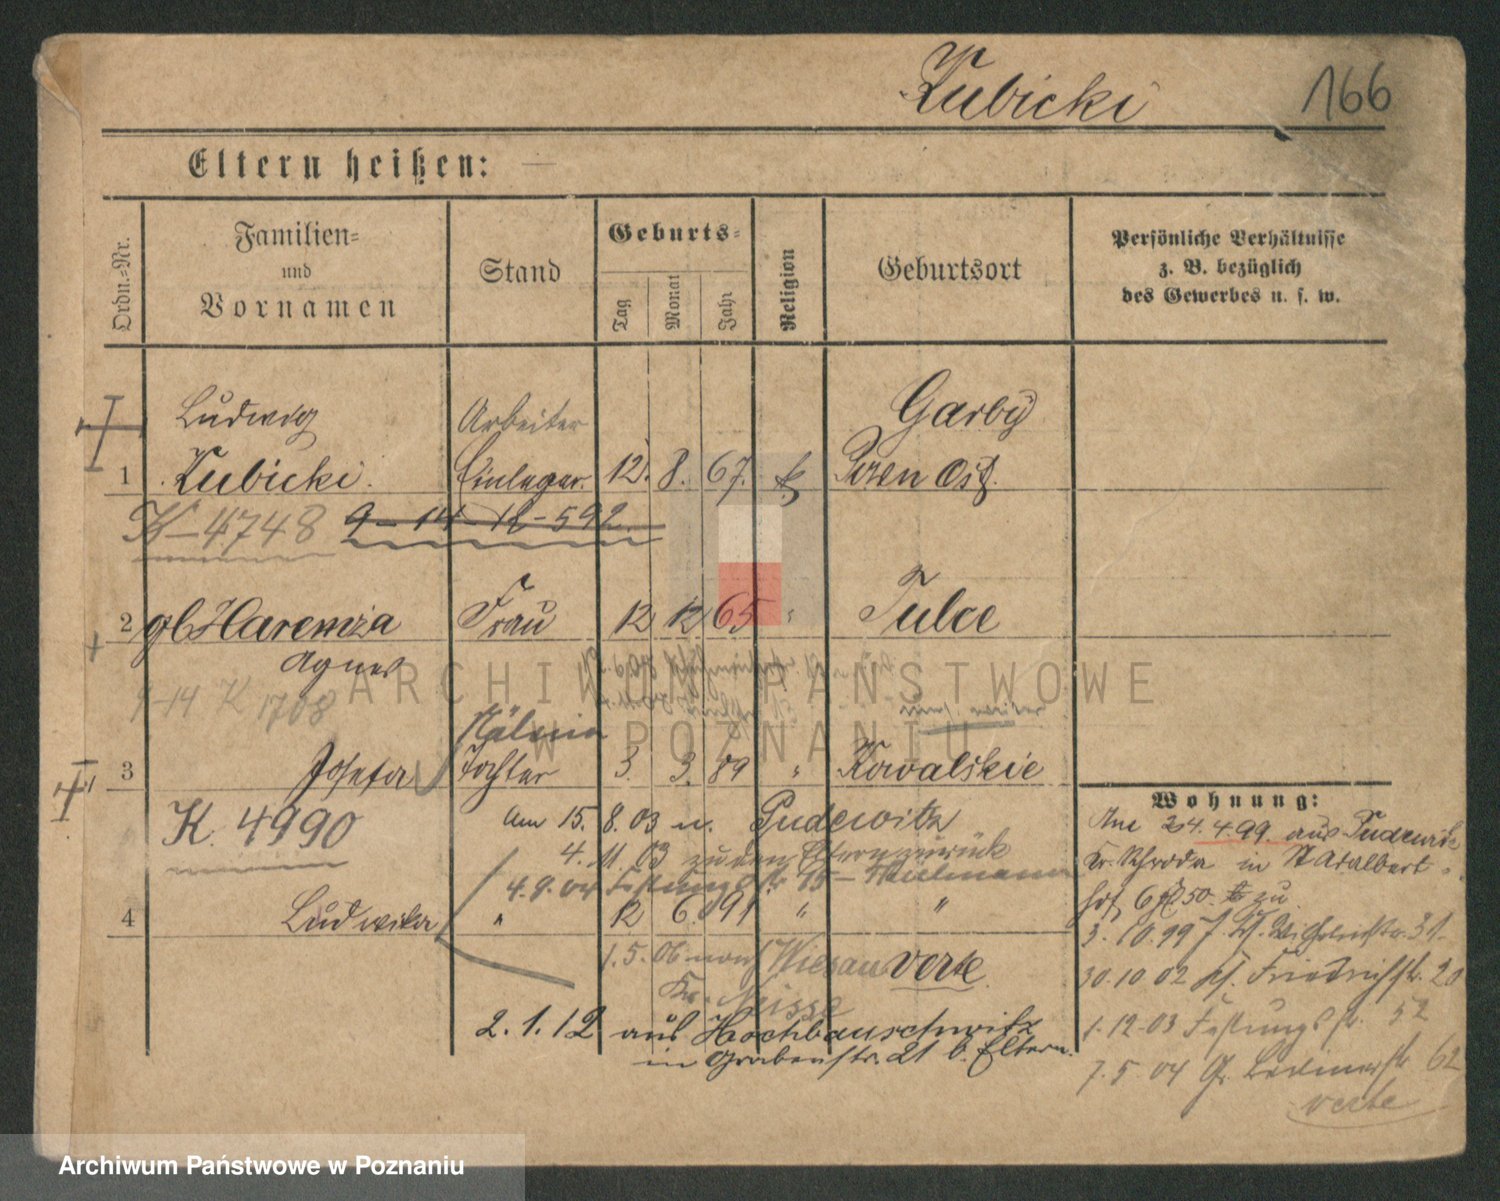 Lubicki 166
Eltern heißen: —
Ordn.-Nr.
Familien-
und
Vornamen
Stand
Geburts-
Tag
Monat
Jahr
Religion
Geburtsort
Persönliche Verhältnisse
z. B. bezüglich
des Gewerbes u. s. w.
Ludwig Arbeiter Garby
1 Lubicki. Einleger. 12. 8. 67. k Posen Ost.
K-4748 9-14-12-592
2 gb Haremza Frau 12 12 65 " Tulce
Agnes
9-14 K 1708
Näherin
3 Josefa Tochter 3. 3. 89 " Kowalskie
K. 4990
am 15. 8. 03 n. Pudewitz
4. 11. 03 zu den Eltern zurück
4.9.04 Festungsstr 15 -
4 Ludwika " 12 6. 91 " "
1.5.06 nach Wiesau verte
Kr. Neisse
2.1.12 aus
in Grabenstr. 21 b. Eltern.
Wohnung:
24.4.99. aus Pudewitz
Kr. Schroda in St Adalbert-
50. zu
3. 10. 99 31.
30.10.02 Friedrichstr. 20
1.12.03 Festungsstr. 52
7.5.04 Gr. 62
verte
ARCHIWUM PAŃSTWOWE
W POZNANIU
Archiwum Państwowe w Poznaniu